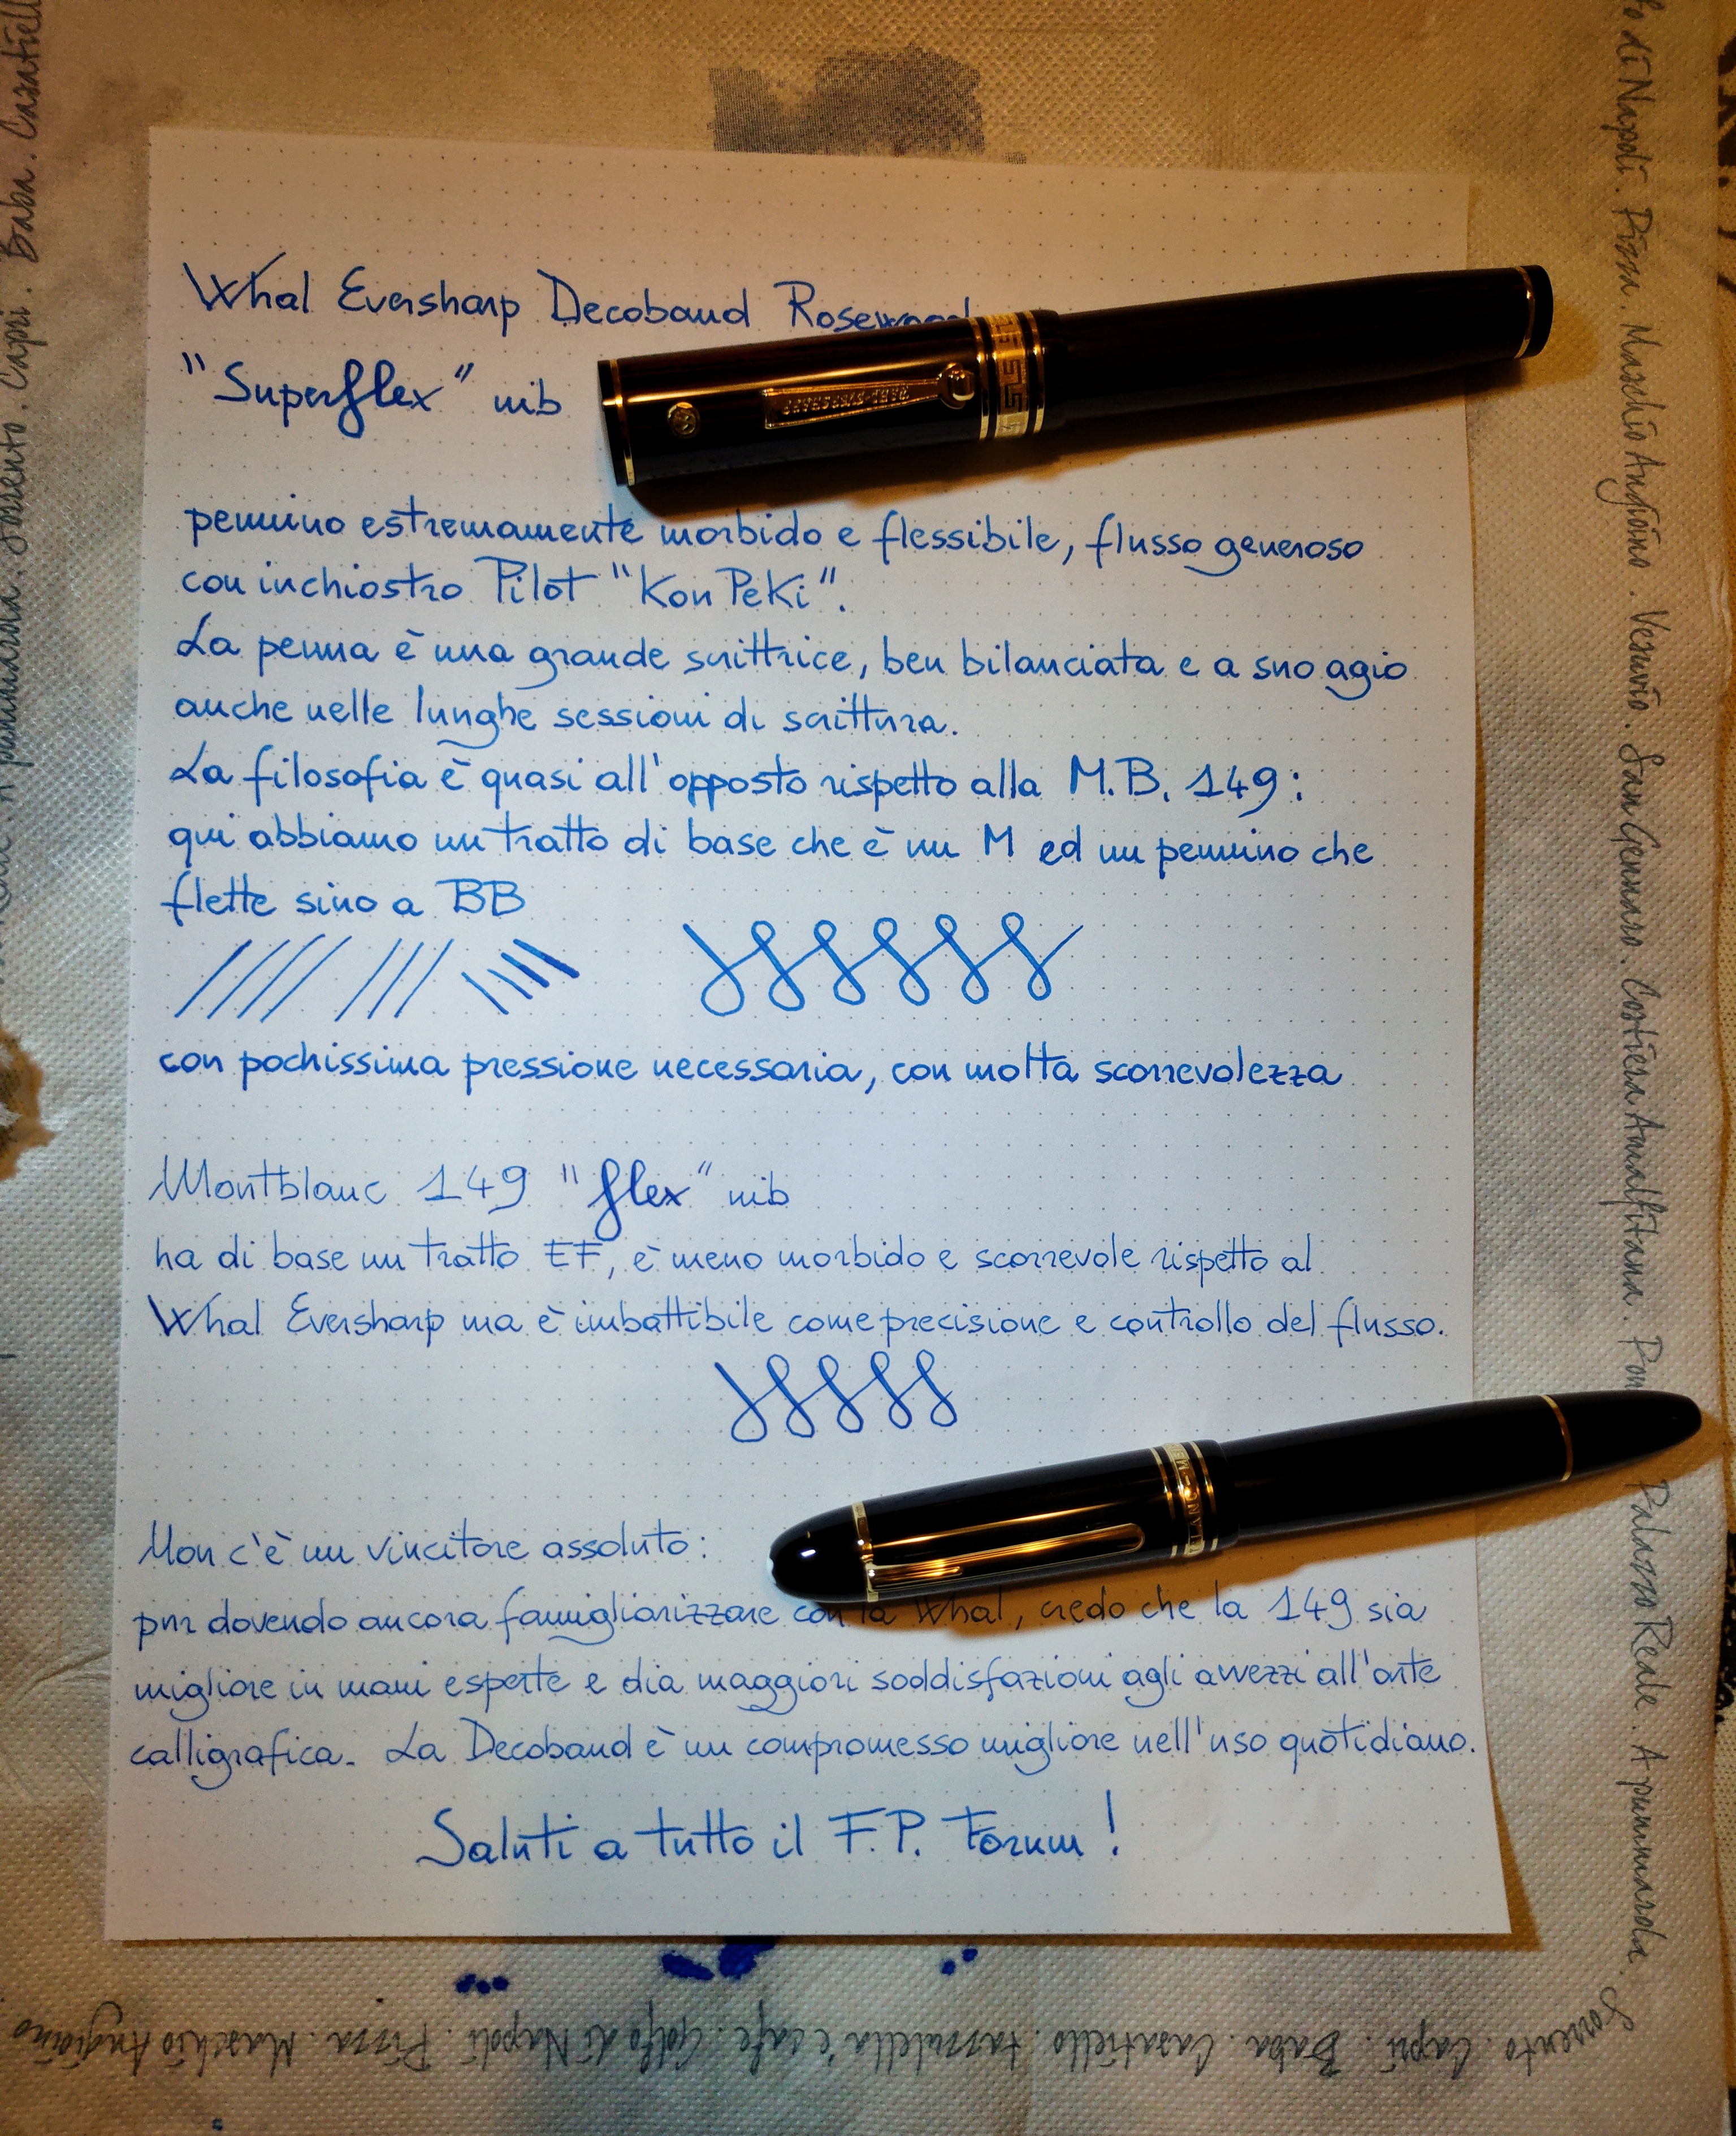 Whal Eversharp Decoband Rosewood
"Superflex" nib
pennino estremamente morbido e flessibile, flusso generoso
con inchiostro Pilot "Kon Peki".
La penna è una grande scrittrice, ben bilanciata e a suo agio
anche nelle lunghe sessioni di scrittura.
La filosofia è quasi all'opposto rispetto alla M.B. 149:
qui abbiamo un tratto di base che è un M ed un pennino che
flette sino a BB
con pochissima pressione necessaria, con molta scorrevolezza
Montblanc 149 "flex" nib
ha di base un tratto EF, è meno morbido e scorrevole rispetto al
Whal Eversharp ma è imbattibile come precisione e controllo del flusso.
Non c'è un vincitore assoluto:
pur dovendo ancora famigliarizzare con la Whal, credo che la 149 sia
migliore in mani esperte e dia maggiori soddisfazioni agli avvezzi all'arte
calligrafica. La Decoband è un compromesso migliore nell'uso quotidiano.
Saluti a tutto il F.P. Forum!
Baba. Casatiell
A pummarola. Sorrento. Capri.
di Napoli. Pizza. Maschio Angioino. Vesuvio. San Gennaro. Costiera Amalfitana.
Palazzo Reale. A pummarola.
Sorrento. Capri. Baba. Casatiello. tazzulella 'e cafe. Golfo di Napoli. Pizza. Maschio Angioino